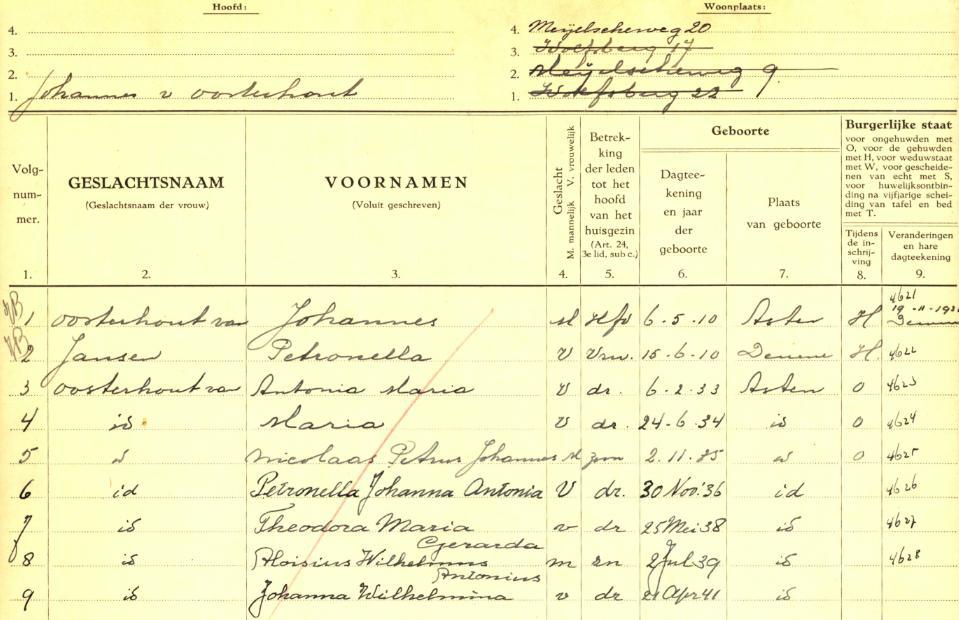 Hoofd:
4.
3.
2.
1. Johannes v Oosterhout
Woonplaats:
4. Meijelscheweg 20
3. Wolfsberg 17
2. Meijelscheweg 9
1. Wolfsberg 22
Volg-
num-
mer.
1.
GESLACHTSNAAM
(Geslachtsnaam der vrouw)
2.
VOORNAMEN
(Voluit geschreven)
3.
Geslacht
M. mannelijk V. vrouwelijk
4.
Betrek-
king
der leden
tot het
hoofd
van het
huisgezin
(Art. 24,
3e lid, sub c.)
5.
Geboorte
Dagtee-
kening
en jaar
der
geboorte
6.
Plaats
van geboorte
7.
Burgerlijke staat
voor ongehuwden met
O, voor de gehuwden
met H, voor weduwstaat
met W, voor gescheide-
nen van echt met S,
voor huwelijksontbin-
ding na vijfjarige schei-
ding van tafel en bed
met T.
Tijdens
de in-
schrij-
ving
8.
Veranderingen
en hare
dagteekening
9.
VB 1 Oosterhout van Johannes M Hfd 6-5-10 Asten H 4621 19-11-193 Deurne
VB 2 Jansen Petronella V Vrw. 15-6-10 Deurne H. 4622
3 Oosterhout van Antonia Maria V dr. 6-2-33 Asten O 4623
4 id Maria V dr. 24-6-34 id O 4624
5 id Nicolaas Petrus Johannes M zoon 2.11.35 id O 4625
6 id Petronella Johanna Antonia V dr. 30 Nov.'36 id 4626
7 id Theodora Maria v dr 25 Mei 38 id 4627
Gerarda
8 id Aloisius Wilhelmus m zn 2 Jul 39 id 4628
Antonius
9 id Johanna Wilhelmina v dr 21 Apr 41 id